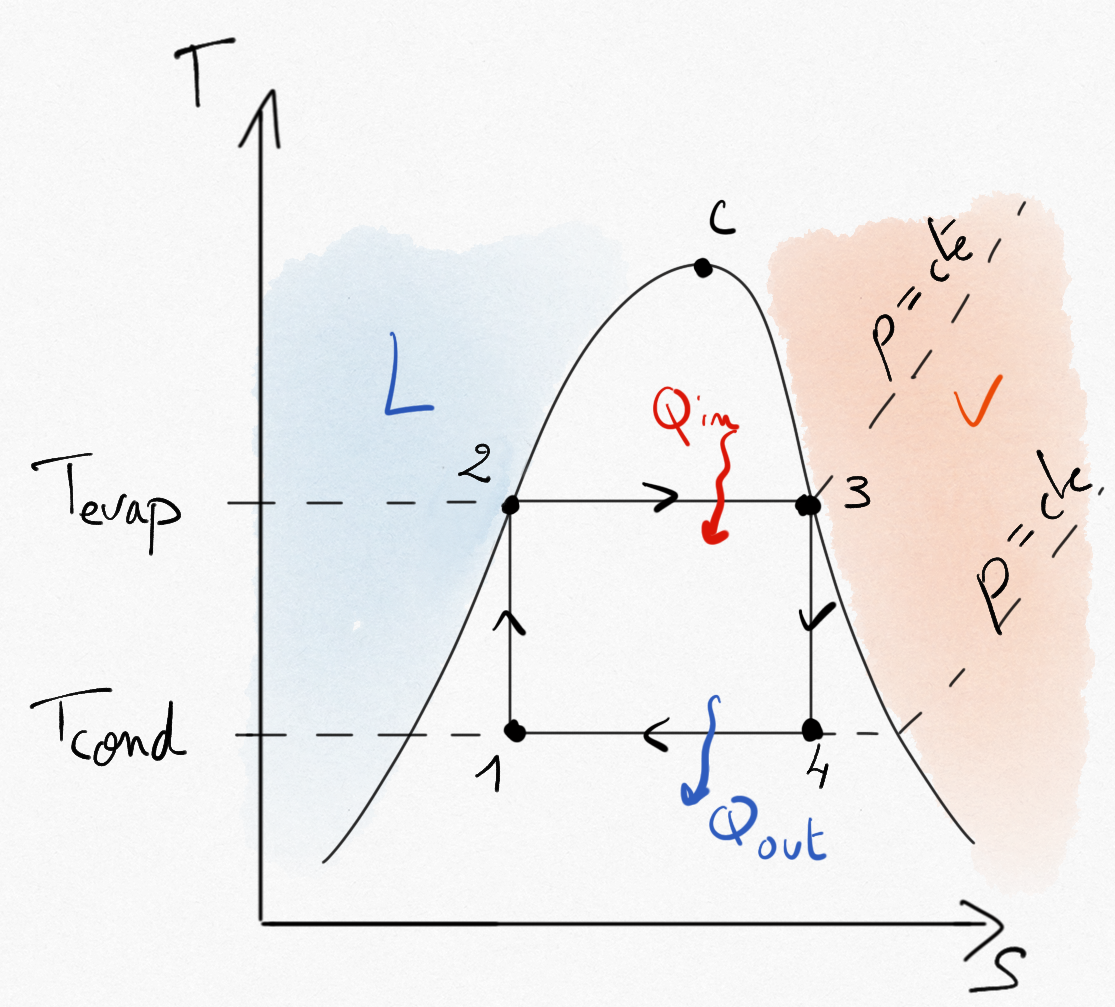 T
C
P = cte
L
V
Qin
2
Tevap
3
P = cte.
Tcond
1
4
Qout
S